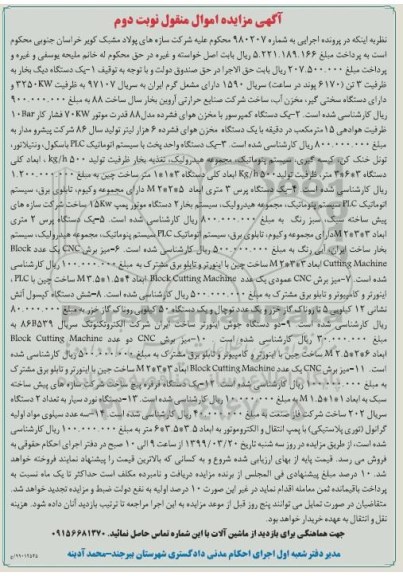 آگهی مزایده اموال منقول نوبت دوم
نظر به اینکه در پرونده اجرایی به شماره ۹۸۰۲۰۷ محکوم علیه شرکت سازه های پولاد مشبک کویر خراسان جنوبی محکوم
است به پرداخت مبلغ ۵.۲۲۱.۱۸۹.۱۶۶ ریال بابت اصل خواسته و غیره در حق محکوم له خانم ملیحه یوسفی و غیره و
پرداخت مبلغ ۲۰۷.۵۰۰.۰۰۰ ریال بابت حق الاجرا در حق صندوق دولت و با توجه به توقیف ۱-یک دستگاه دیگ بخار به
ظرفیت ۳ تن (۶۱۷۰ پوند در ساعت) سریال ۱۵۹۰ دارای مشعل گرم ایران به سریال ۹۷۱۰۷ به ظرفیت ۳۲۵۰KW و
دارای دستگاه سختی گیر، مخزن آب، ساخت شرکت صنایع حرارتی آروین بخار سال ساخت ۸۸ به مبلغ ۹۰۰.۰۰۰.۰۰۰
ریال کارشناسی شده است. ۲-یک دستگاه کمپرسور با مخزن هوای فشرده مدل۸۸ قدرت موتور ۷۰KW فشار کار 10Bar
ظرفیت هوادهی ۱۵ مترمکعب در دقیقه با یک دستگاه مخزن هوای فشرده ۶ هزار لیتر تولید سال ۸۶ شرکت پیشرو مدار به
مبلغ ۸۰۰.۰۰۰.۰۰۰ ریال کارشناسی شده است. ۳-یک دستگاه واحد پخت با سیستم اتوماتیک PLC باسکول، ونتیلاتور،
تونل خنک کن، کیسه گیری، سیستم پنوماتیک، مجموعه هیدرولیک، تغذیه بخار ظرفیت تولید ۵۰۰ kg/h ، ابعاد کلی
دستگاه ۳*۶*۳ متر، ظرفیت تولید۵۰۰ Kg/h ابعاد کلی دستگاه ۳*۱*۱ متر ساخت چین به مبلغ ۱.۲۰۰.۰۰۰.۰۰۰
ریال کارشناسی شده است. ۴-یک دستگاه پرس ۳ متری ابعاد ۵*۲*۲ M دارای مجموعه وکیوم، تابلوی برق، سیستم
اتوماتیک PLC سیستم پنوماتیک، مجموعه هیدرولیک، سیستم بخار۲ دستگاه موتور پمپ ۱۵Kw ساخت شرکت سازه های
پیش ساخته سبک، سبز رنگ به مبلغ ۸۰۰.۰۰۰.۰۰۰ ریال کارشناسی شده است. ۵-یک دستگاه پرس ۲ متری
ابعاد ۳*۲*۲ M دارای مجموعه و کیوم، تابلوی برق، سیستم اتوماتیک PLC سیستم پنوماتیک، مجموعه هیدرولیک، سیستم
بخار ساخت ایران، آبی رنگ به مبلغ ۵۰۰.۰۰۰.۰۰۰ ریال کارشناسی شده است. ۶-میز برش CNC یک عدد Block
Cutting Machine ابعاد ۳*۲*۲ M ساخت چین با اینورتر و تابلو برق مشترک به مبلغ ۱۰۰.۰۰۰.۰۰۰ ریال کارشناسی
شده است. ۷-میز برش CNC عمودی یک عدد Block Cutting Machine ابعاد ۲*۱.۵*۳.۵ M ساخت چین با PLC ،
اینورتر و کامپیوتر و تابلو برق مشترک به مبلغ ۵۰۰.۰۰۰.۰۰۰ ریال کارشناسی شده است. ۸-شش دستگاه کپسول آتش
نشانی ۱۲ کیلویی ۵ تا روناک گاز خزر و یک عدد توچال و یک دستگاه ۵۰ کیلویی روناک گاز خزر به مبلغ ۸۰۰۰.۰۰۰
ریال کارشناسی شده است ۹-دو دستگاه جوش اینورتر ساخت ایران شرکت الکترونکونگ سریال ۸۶B۵۳۹ به
مبلغ ۳۰.۰۰۰.۰۰۰ ریال کارشناسی شده است. ۱۰-میز برش CNC دو عدد Block Cutting Machine
ابعاد ۶*۲*۲.۵ M ساخت چین با اینورتر و کامپیوتر و تابلوی برق مشترک به مبلغ ۵۰۰.۰۰۰.۰۰۰ ریال کارشناسی شده
است. ۱۱-میز برش CNC یک عدد Block Cutting Machine ابعاد ۳*۲*۲ M ساخت چین با اینورتر و تابلو برق مشترک
به مبلغ ۱۰۰.۰۰۰.۰۰۰ ریال کارشناسی شده است. ۱۲-یک دستگاه قرقره پیچ ساخت شرکت سازه های پیش ساخته
سبک به ابعاد ۱*۱*۱.۵ M به مبلغ ۱۰.۰۰۰.۰۰۰ ریال کارشناسی شده است. ۱۳-دستگاه نورد سیار به تعداد ۲ دستگاه
سریال ۲۰۲ ساخت شرکت فاز صنعت به مبلغ ۴۰۰.۰۰۰.۰۰۰ ریال کارشناسی شده است. ۱۴-سه عدد سیلوی مواد اولیه
گرانول (توری پلاستیکی) با پمپ انتقال و الکتروموتور به ابعاد ۳.۵*۳.۵*۶ متر به مبلغ ۱۰۰.۰۰۰.۰۰۰ ریال کارشناسی
شده است، از طریق مزایده در روز سه شنبه تاریخ ۱۳۹۹/۰۳/۲۰ از ساعت ۹ الی ۱۰ صبح در دفتر اجرای احکام حقوقی به
فروش می رسد. قیمت پایه از بهای ارزیابی شده شروع و به کسانی که بالاترین قیمت را پیشنهاد نمایند فروخته خواهد
شد. ۱۰ درصد مبلغ پیشنهادی فی المجلس از برنده مزایده دریافت و نامبرده مکلف است حداکثر تا یک ماه نسبت به
پرداخت باقیمانده ثمن معامله اقدام نماید در غیر این صورت ۱۰ درصد اولیه به نفع دولت ضبط و مزایده تجدید خواهد شد.
متقاضیان در صورت تمایل می توانند پنج روز قبل از موعد مزایده به این اجرا مراجعه تا ترتیب بازدید آنان داده شود. هزینه
نقل و انتقال به عهده خریدار خواهد بود.
جهت هماهنگی برای بازدید از ماشین آلات با این شماره تماس حاصل نمائید. ۰۹۱۵۶۶۸۱۳۷۰
مدیر دفتر شعبه اول اجرای احکام مدنی دادگستری شهرستان بیرجند-محمد آدینه